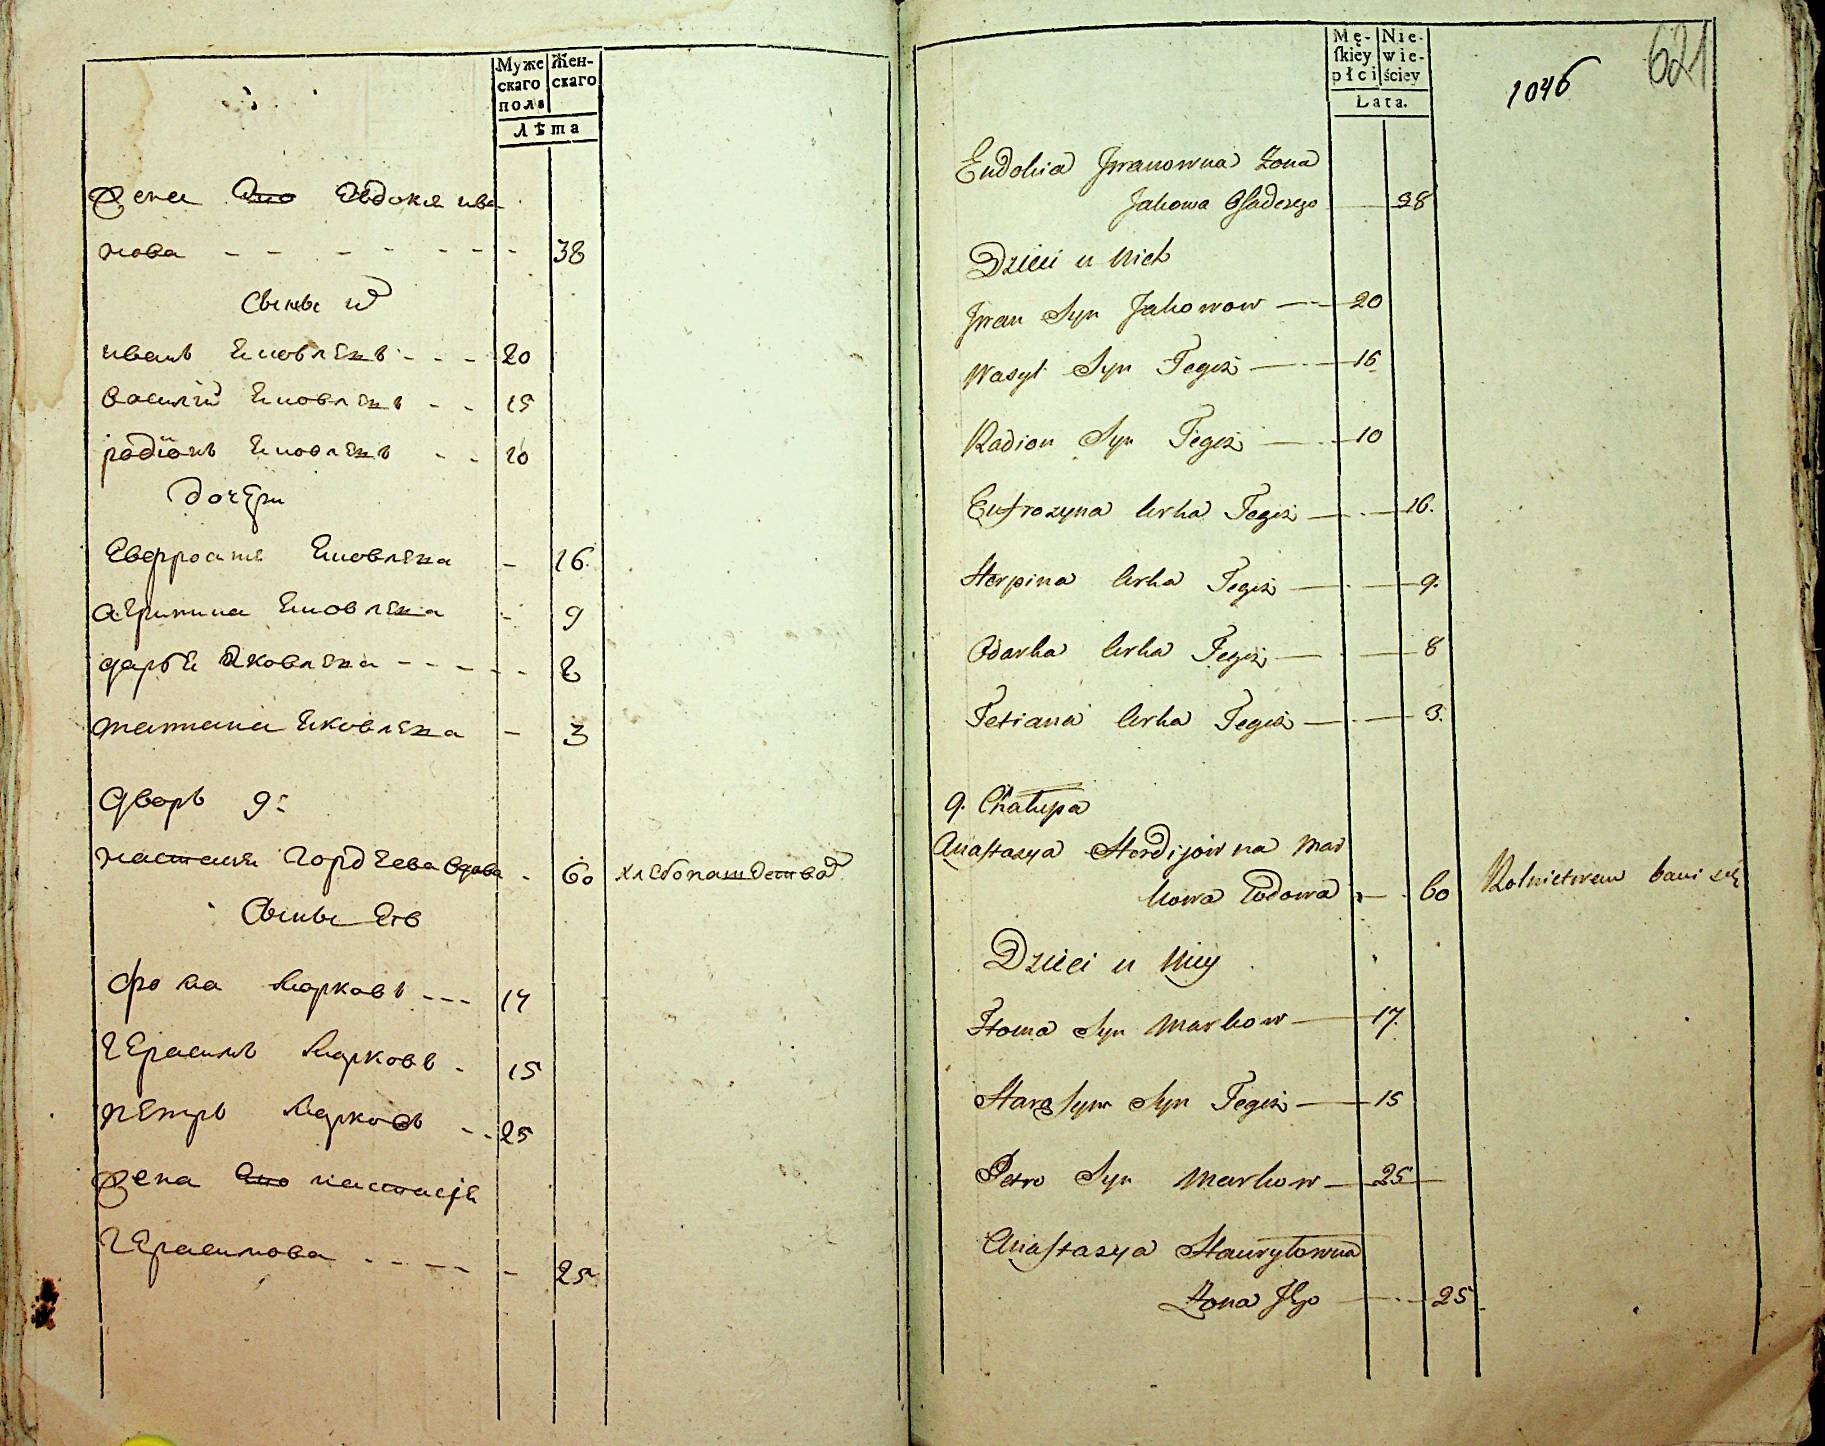 Муже
скаго
полѣ
Жен-
скаго
Лѣта
жена Ево Евдокея ива
нова - - - - - - - 38
Сыны их
иванъ Ековлевъ - - - 20
василий Ековлевъ - - 15
родїонъ Ековлевъ - - 10
дочери
Еверросине Ековлева - 16
агрипина Ековлева - 9
дарья Яковлева - - - - - 8
татиана Ековлева - 3
дворъ 9:
настасия Гордѣева вдова - 60 хлебопашеством
Сыны Ее
фома Марковъ - - - 17
Герасимъ Марковъ - 15
петръ Марковъ - - 25
жена Ево настасѣя
Герасимова - - - - - 25
Mę-
skiey
płci
Nie-
wie-
ściey
Lata.
1046
621
Eudokia Jwanowna Zona
Jakowa Osadczego 38
Dzieci u Nich
Jwan Syn Jakowow — 20
Wasyl Syn Tegoż — 15
Radion Syn Tegoż — 10
Eufrozyna Curka Tegoż — 16.
Horpina Curka Tegoż — 9.
Odarka Curka Tegoż — 8
Tetiana Curka Tegoż — 3.
9. Chałupa
Anastazya Hordijowna Mar
kowa Wdowa — 60 Rolnictwem bawi się
Dzieci u Niey
Homa Syn Markow — 17.
Harasym Syn Tegoż — 15
Petro Syn Markow — 25
Anastazya Hauryłowna
Zona Jego — 25